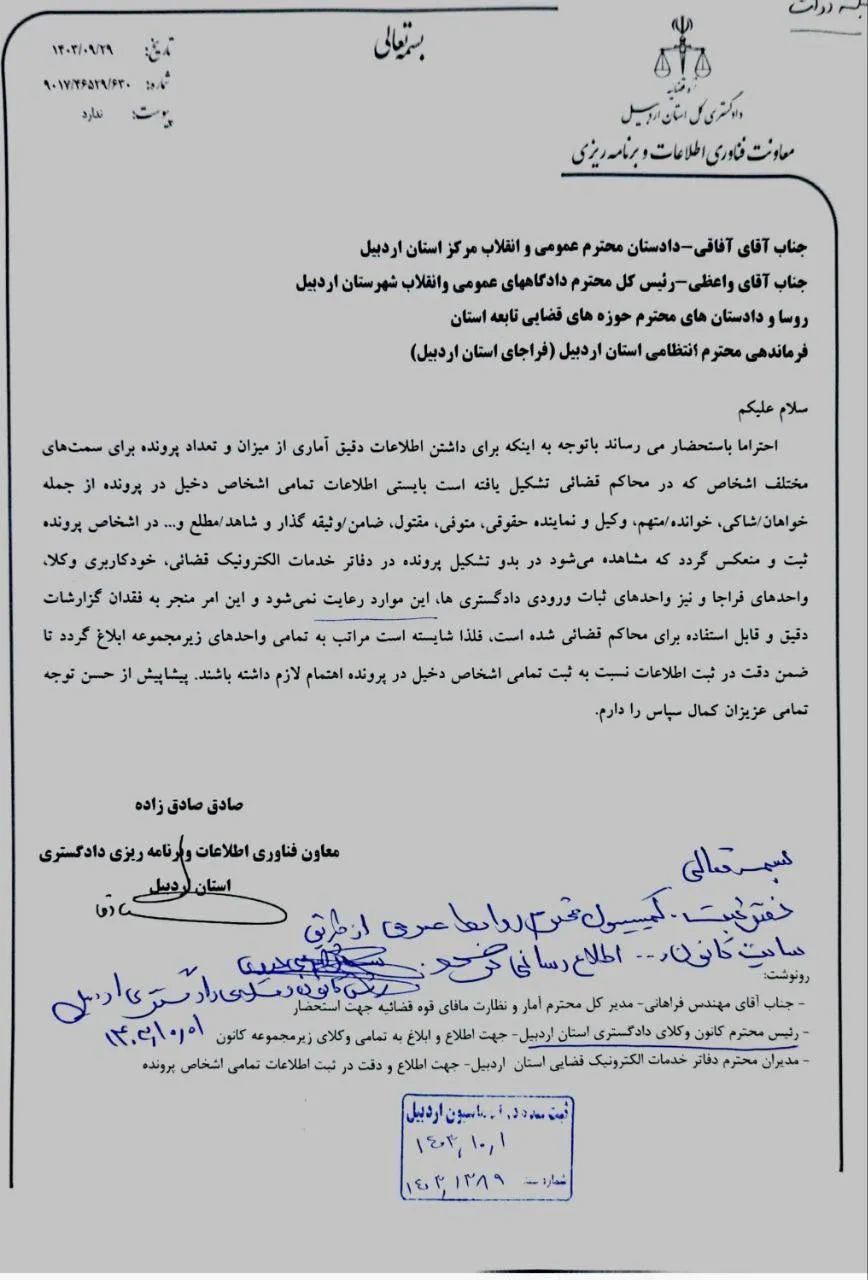 بسمه تعالی
تاریخ: ۱۴۰۳/۰۹/۲۹
شماره: ۹۰۱۷/۴۶۵۲۹/۶۳۰
پیوست: ندارد
قضاییه
دادگستری کل استان اردبیل
معاونت فناوری اطلاعات و برنامه ریزی
جناب آقای آفاقی-دادستان محترم عمومی و انقلاب مرکز استان اردبیل
جناب آقای واعظی-رئیس کل محترم دادگاههای عمومی وانقلاب شهرستان اردبیل
روسا و دادستان های محترم حوزه های قضایی تابعه استان
فرماندهی محترم انتظامی استان اردبیل (فراجای استان اردبیل)
سلام علیکم
احتراما باستحضار می رساند باتوجه به اینکه برای داشتن اطلاعات دقیق آماری از میزان و تعداد پرونده برای سمت‌های
مختلف اشخاص که در محاکم قضائی تشکیل یافته است بایستی اطلاعات تمامی اشخاص دخیل در پرونده از جمله
خواهان/شاکی، خوانده/متهم، وکیل و نماینده حقوقی، متوفی، مقتول، ضامن/وثیقه گذار و شاهد/مطلع و... در اشخاص پرونده
ثبت و منعکس گردد که مشاهده می‌شود در بدو تشکیل پرونده در دفاتر خدمات الکترونیک قضائی، خودکاربری وکلا،
واحدهای فراجا و نیز واحدهای ثبات ورودی دادگستری ها، این موارد رعایت نمی‌شود و این امر منجر به فقدان گزارشات
دقیق و قابل استفاده برای محاکم قضائی شده است، فلذا شایسته است مراتب به تمامی واحدهای زیرمجموعه ابلاغ گردد تا
ضمن دقت در ثبت اطلاعات نسبت به ثبت تمامی اشخاص دخیل در پرونده اهتمام لازم داشته باشند. پیشاپیش از حسن توجه
تمامی عزیزان کمال سپاس را دارم.
صادق صادق زاده
معاون فناوری اطلاعات وبرنامه ریزی دادگستری
استان اردبیل
بسمه تعالی
دفتر ثبت - کمیسیون محترم روابط عمومی از طریق
سایت کانون و... اطلاع رسانی
رئیس کانون وکلای دادگستری اردبیل
۱۴۰۳/۱۰/۰۱
رونوشت:
- جناب آقای مهندس فراهانی- مدیر کل محترم آمار و نظارت مافای قوه قضائیه جهت استحضار
- رئیس محترم کانون وکلای دادگستری استان اردبیل- جهت اطلاع و ابلاغ به تمامی وکلای زیرمجموعه کانون
- مدیران محترم دفاتر خدمات الکترونیک قضایی استان اردبیل- جهت اطلاع و دقت در ثبت اطلاعات تمامی اشخاص پرونده
ثبت شده در اردبیل
۱۴۰۳/۱۰/۱
شماره ۱۴۰۳/۱۳۸۹